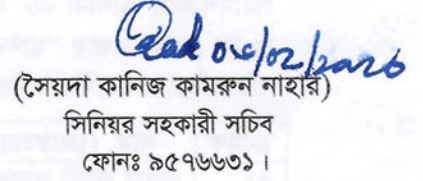 ০৫/০২/২০২০
(সৈয়দা কানিজ কামরুন নাহার)
সিনিয়র সহকারী সচিব
ফোনঃ ৯৫৭৬৬৩১।